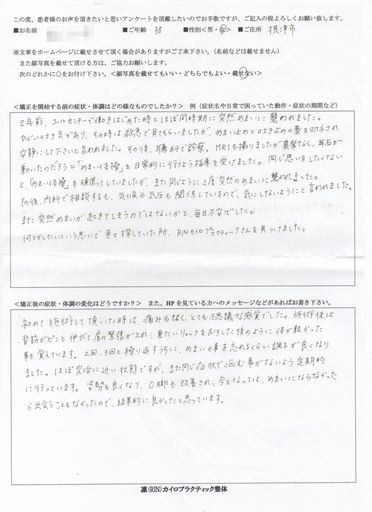 この度、患者様のお声を頂きたいと思いアンケートを頂戴したいのでお手数ですが、ご記入の程よろしくお願い致します。
■お名前 ■ご年齢 38 ■性別<男・女> ■ご住所 摂津市
※文章をホームページに載せさせて頂く場合がありますがご了承下さい。(名前などは載せません)
また顔写真を載せて頂ける方は、ご協力お願いします。
次のどれかに○をお付け下さい。<顔写真を載せてもいい・どちらでもよい・載せない>
<矯正を開始する前の症状・体調はどの様なものでしたか?> 例(症状名や日常で困っていた動作・症状の期間など)
2年前、コールセンターで働きはじめた時とほぼ同時期に突然めまいに襲われました。
ひどい吐き気があり、その時は救急で見てもらいましたが、めまい止めと吐き止めの薬を処方され
安静にして下さいと言われました。その後、耳鼻科で診察、MRIも撮りましたが異常なく、耳石が
動いたのだろうと「めまい体操」を日常的に行うよう指導を受けました。同じ思いをしたくない
と、めまい体操を頑張っていましたが、また同じように2度突然のめまいに襲われました。
その後、内科で相談するも、気候や気圧も関係しているので、気にしないようにと言われましたが、
また突然めまいが起きてしまうのではないかと、毎日不安でした。
何とかしたいという思いで色々探していた所、RINカイロプラクティックさんを見つけました。
<矯正後の症状・体調の変化はどうですか?> また、HPを見ている方へのメッセージなどがあればお書き下さい。
初めて施術して頂いた時は、痛みもなく、とても不思議な感覚でした。施術後は
背筋がピンと伸びて肩の緊張がとれ、重たいリュックをおろした後のように体が軽かった
事を覚えています。2回、3回と繰り返すうちに、めまいの事を忘れるくらい調子が良くなり
ました。ほぼ完治に近い状態ですが、また同じ症状で悩む事がないよう定期的
に行っています。姿勢も良くなり、O脚も改善され、今となっては、めまいにならなかった
ら出会うこともなかったので、結果的に良かったと思っています。
凛(RIN)カイロプラクティック整体